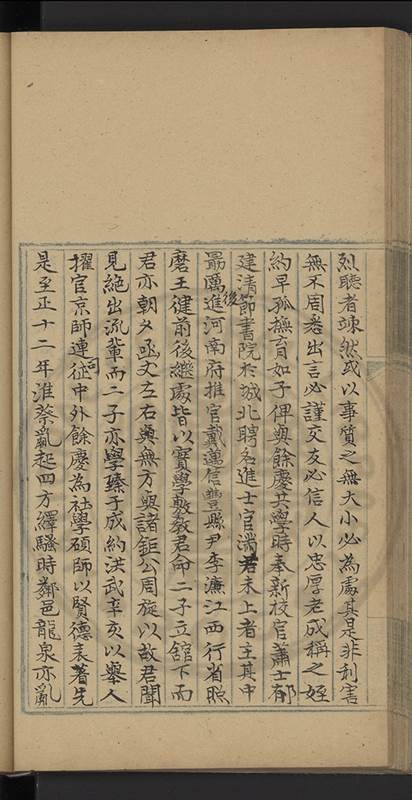 烈聽者竦然或以事質之無大小必為處其是非利害
無不周悉出言必謹交友必信人以忠厚老成稱之姪
約早孤撫育如子俾與餘慶共學時奉新校官蕭士郁
建清節書院於城北聘名進士官滿君未上者主其中
最厲進後河南府推官戴萬信豐縣尹李濂江西行省照
磨王健前後繼處皆以賓學斆教君命二子立舘下而
君亦朝夕函丈左右與無方與諸鉅公周旋以故君聞
見絕出流輩而二子亦學臻于成約洪武辛亥以舉人
擢官京師連徃司中外餘慶為社學碩師以賢德表著先
是至正十二年淮蔡亂起四方繹騷時鄰邑龍泉亦亂